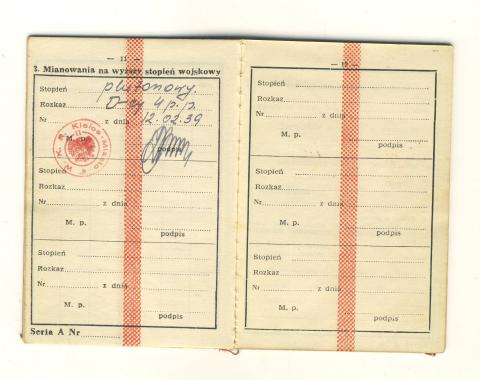 — 11 —
3. Mianowania na wyższy stopień wojskowy
Stopień plutonowy.
Rozkaz D-cy 4 p.p.
Nr z dnia 12.02.39
M. p.
podpis
W. K. R. Kielce-Miasto
Stopień
Rozkaz
Nr z dnia
M. p.
podpis
Stopień
Rozkaz
Nr z dnia
M. p.
podpis
Seria A Nr
— 12 —
Stopień
Rozkaz
Nr z dnia
M. p.
podpis
Stopień
Rozkaz
Nr z dnia
M. p.
podpis
Stopień
Rozkaz
Nr z dnia
M. p.
podpis